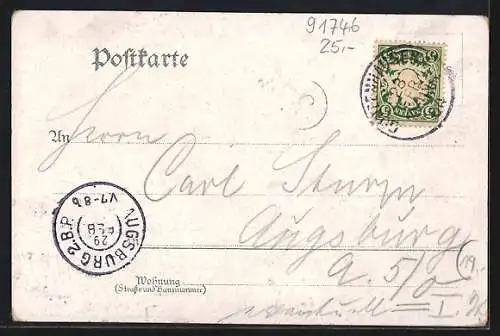 91746
25.-
Postkarte
BAYERN
An
Herrn
Carl Sturm
Augsburg
A. 5/0
AUGSBURG 2.B.P.
29
FEB
V.7-8 b
Wohnung
(Straße und Hausnummer)